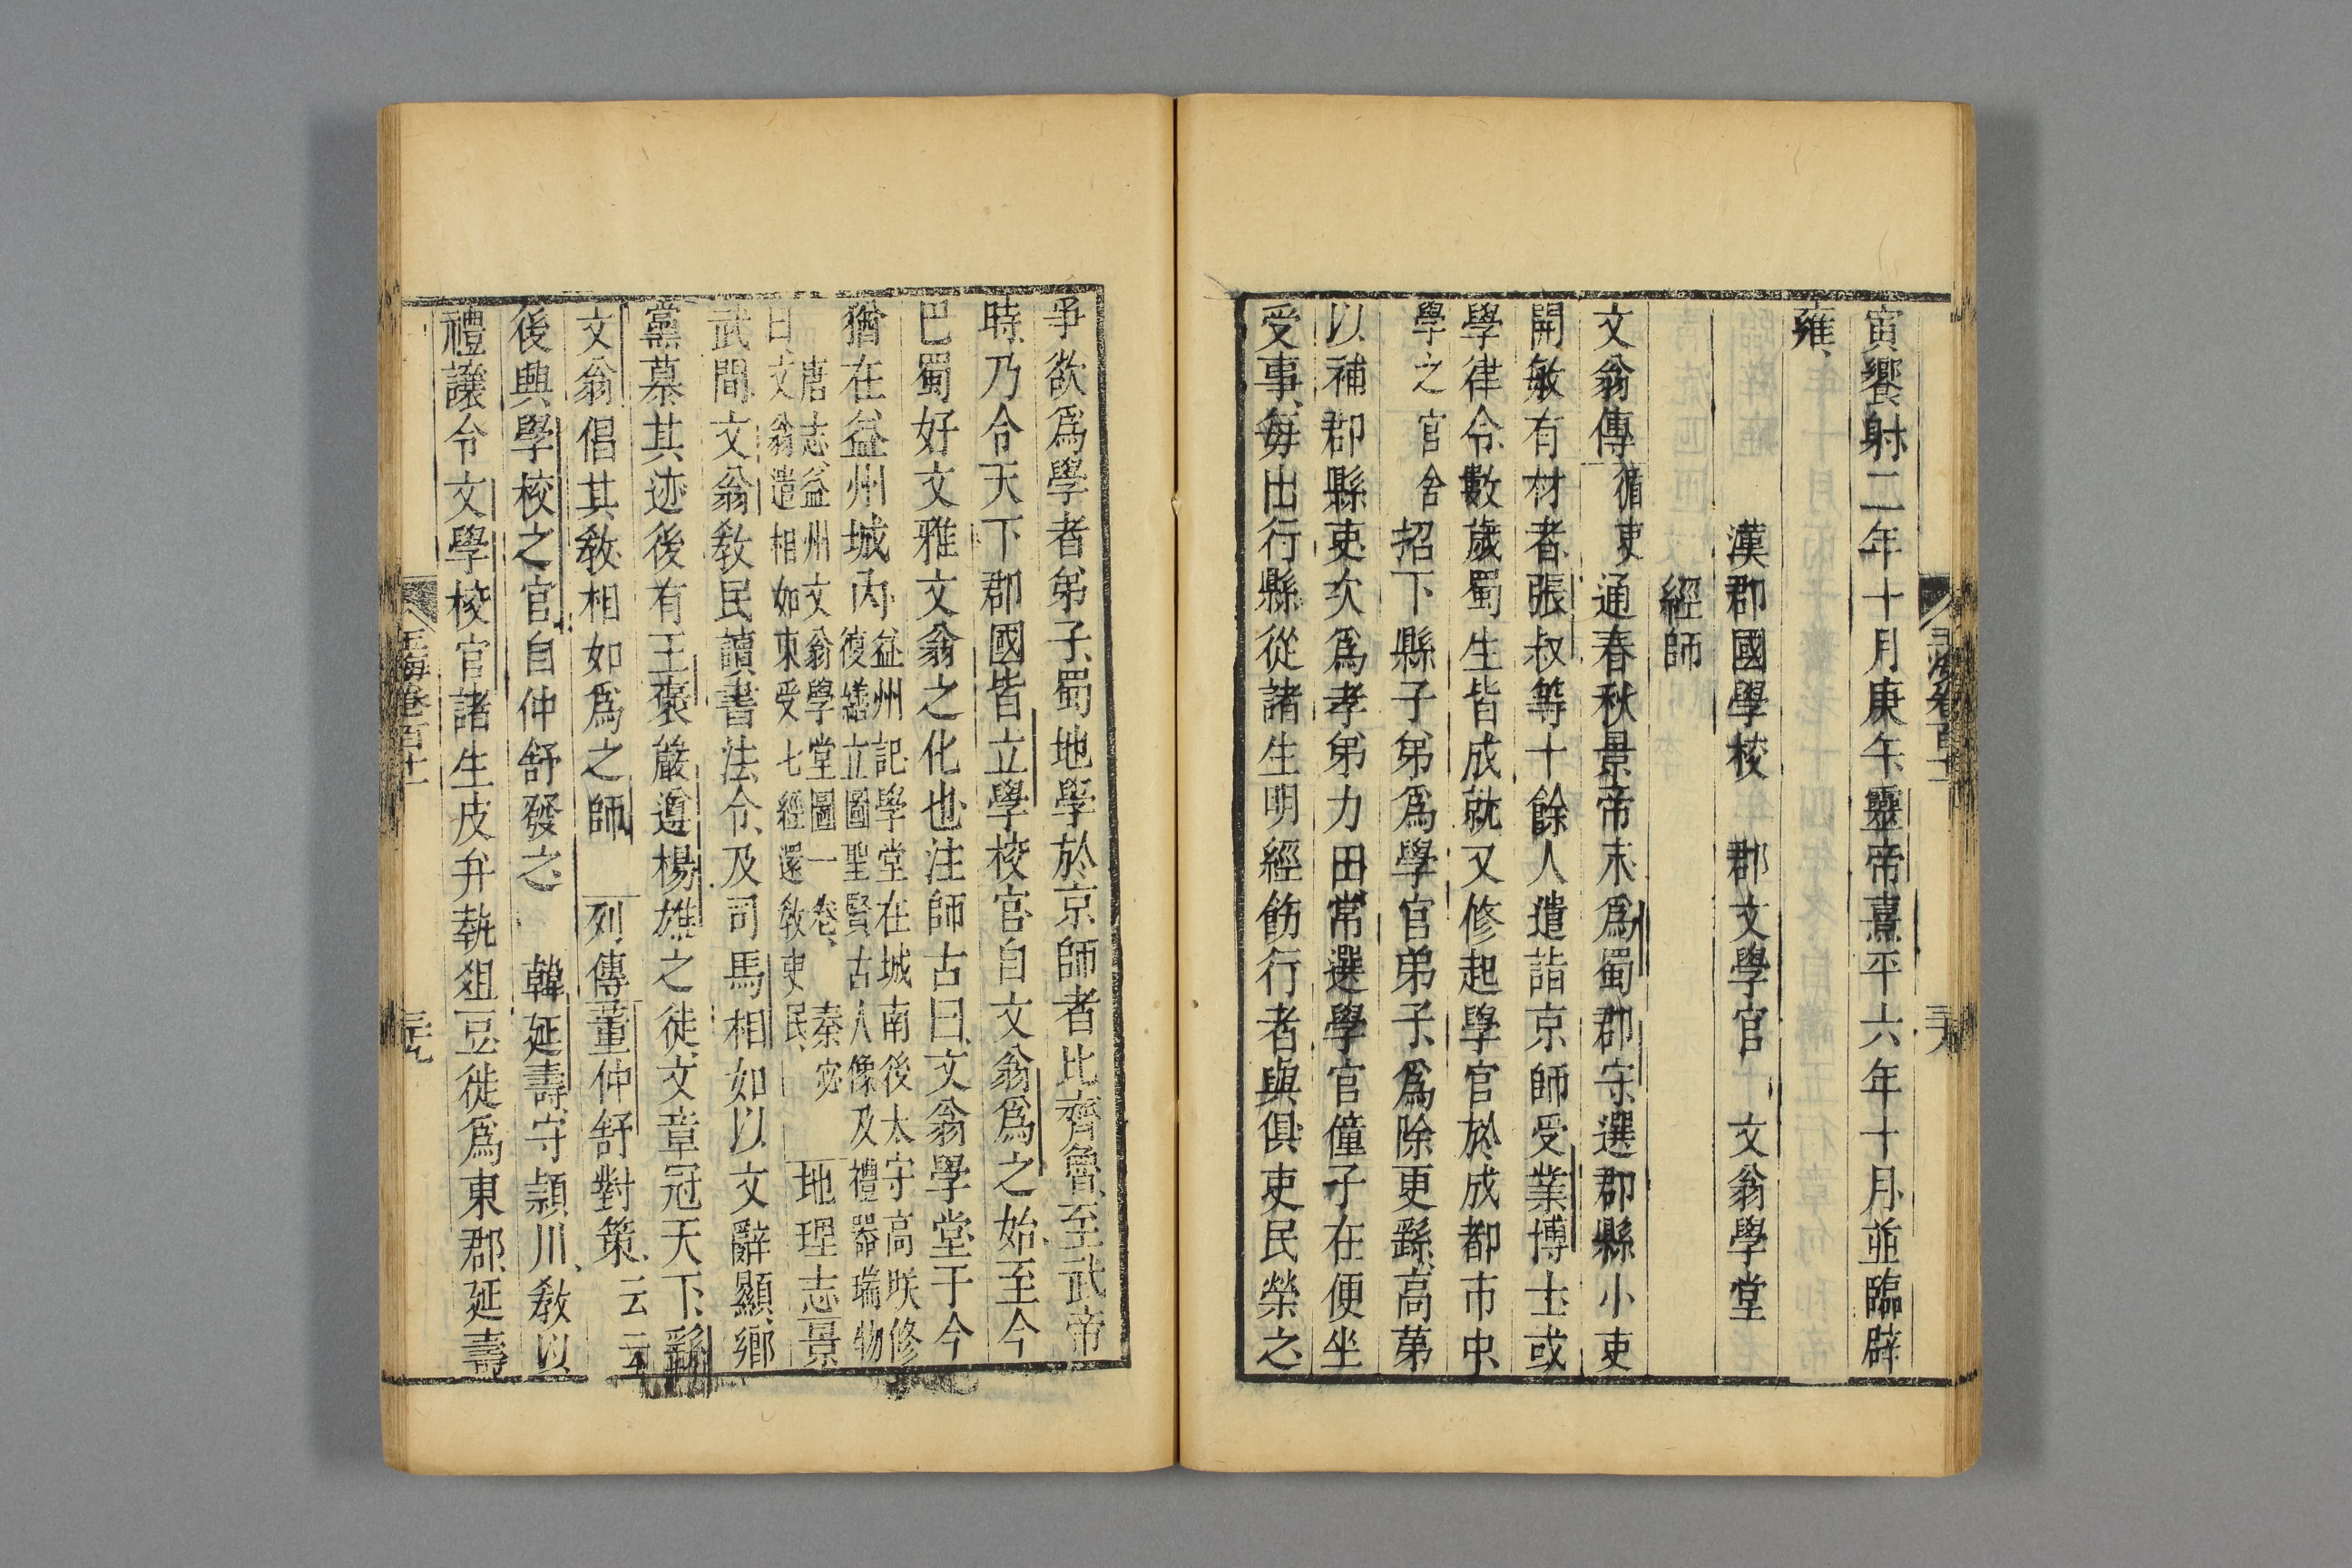 寅饗射二年十月庚午靈帝熹平六年十月並臨辟
雍
漢郡國學校 郡文學官 文翁學堂
經師
文翁傳循吏通春秋景帝末爲蜀郡守選郡縣小吏
開敏有材者張叔等十餘人遣詣京師受業博士或
學律令數歲蜀生皆成就又修起學官於成都市中
學之官舍招下縣子弟爲學官弟子爲除更繇高第
以補郡縣吏次爲孝弟力田常選學官僮子在便坐
受事每出行縣從諸生明經飭行者與俱吏民榮之
爭欲爲學者弟子蜀地學於京師者比齊魯至武帝
時乃令天下郡國皆立學校官自文翁爲之始至今
巴蜀好文雅文翁之化也注師古曰文翁學堂于今
猶在益州城內益州記學堂在城南後太守高朕修
復繕立圖聖賢古人像及禮器瑞物
唐志益州文翁學堂圖一卷 秦宓
曰文翁遣相如東受七經還敎吏民 地理志景
武間文翁敎民讀書法令及司馬相如以文辭顯鄉
黨慕其迹後有王褒嚴遵楊雄之徒文章冠天下繇
文翁倡其敎相如爲之師 列傳董仲舒對策云云
後興學校之官自仲舒發之 韓延壽守潁川敎以
禮讓令文學校官諸生皮弁執俎豆徙爲東郡延壽
玉海卷百十一